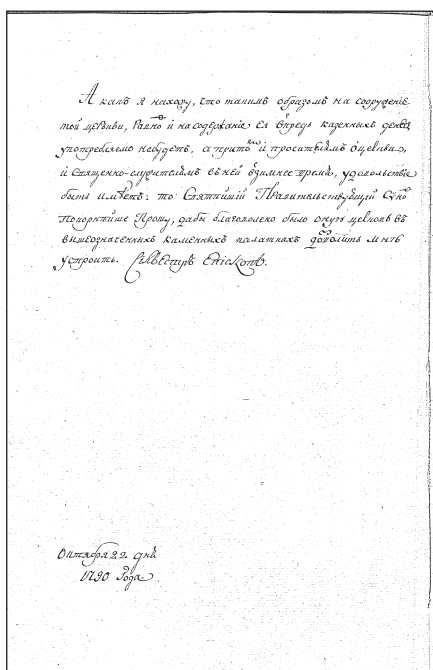 А какъ я нахожу, что такимъ образомъ на сооруженіе
той церкви, равно и на содержаніе ея впредь казенныхъ денегъ
употребляемо не будетъ, а притомъ и просителямъ о церкви,
и священно-служителямъ въ ней въ зимнее время, удовольствіе
быть имѣетъ: то Святѣйшій Правительствующій Сѵнодъ
Покорнѣйше Прошу, дабы благоволено было оную церковь въ
вышеозначенныхъ каменныхъ палаткахъ дозволить мнѣ
устроить. Силвестръ Епископъ.
Октября 22 дня
1790 года.